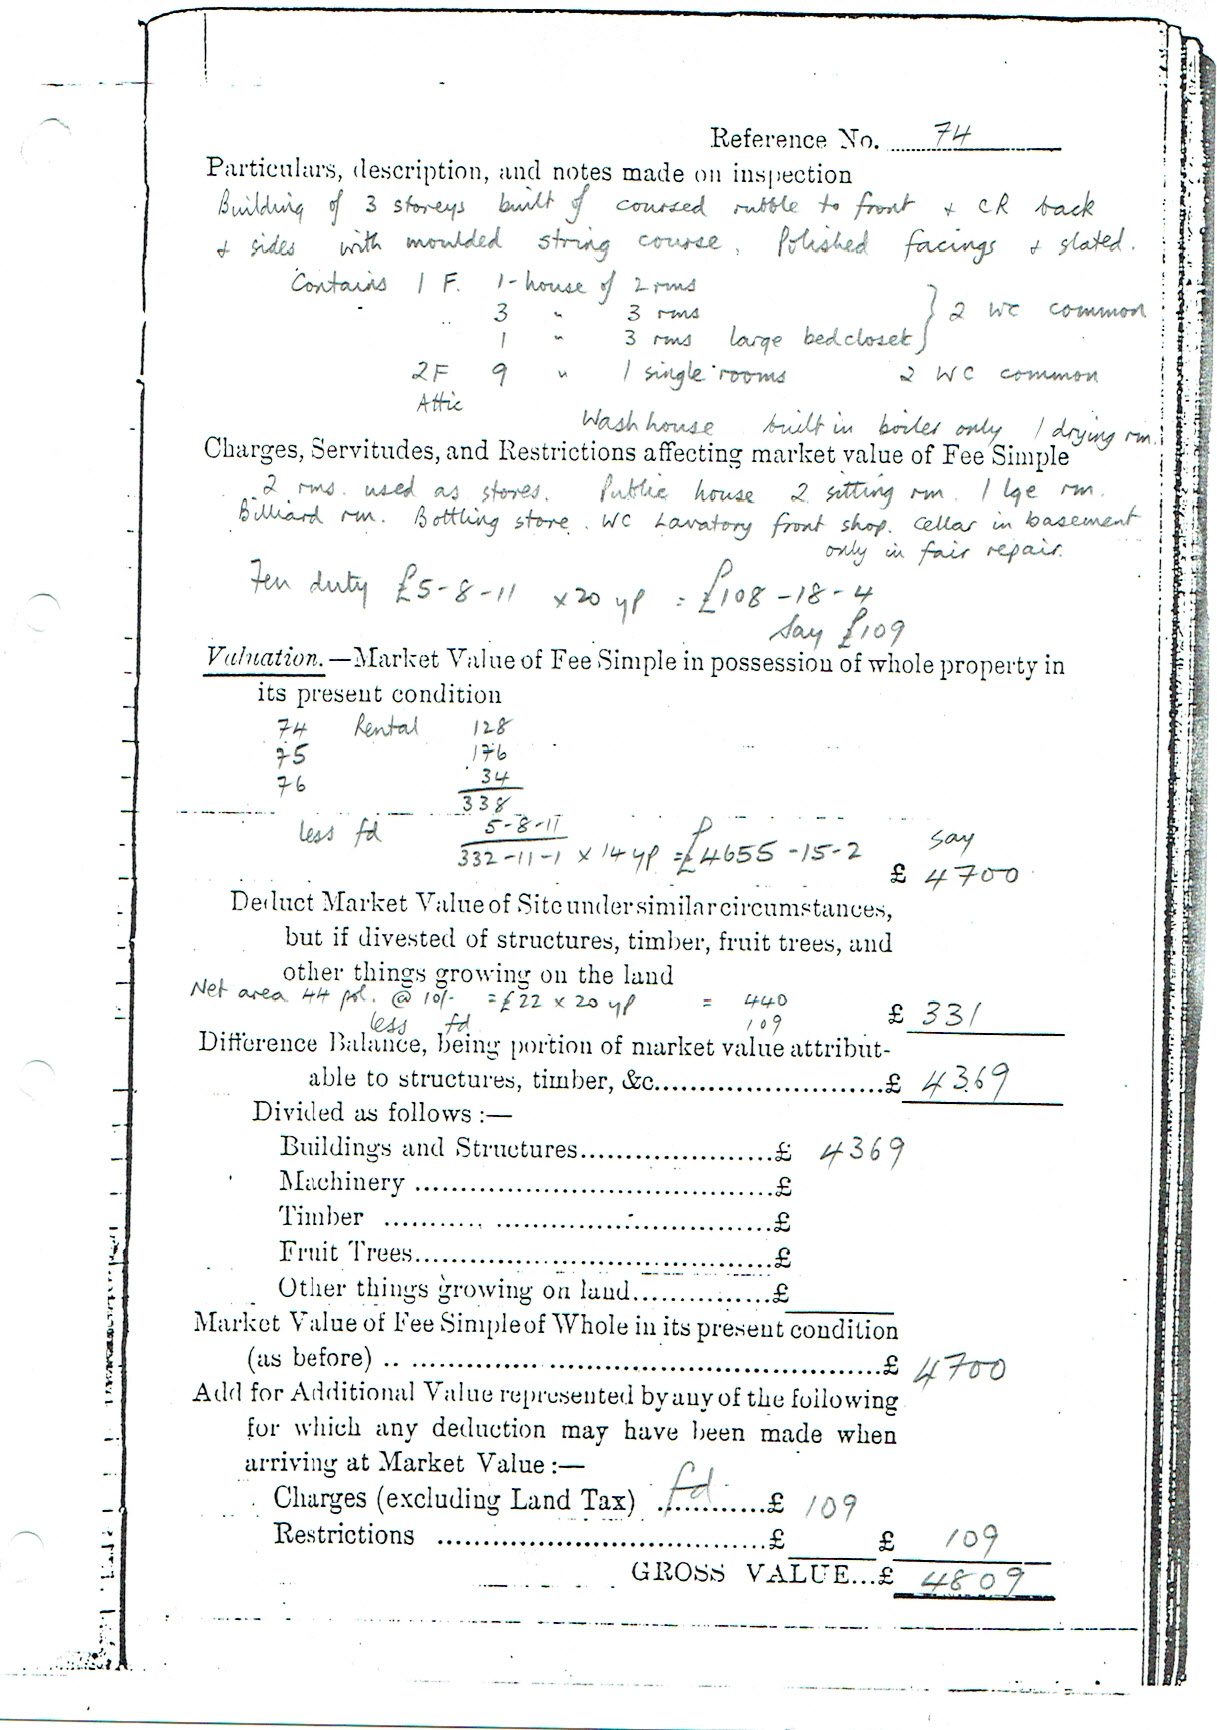 Reference No. 74
Particulars, description, and notes made on inspection
Building of 3 storeys built of coursed rubble to front + CR back
+ sides with moulded string course, Polished facings + slated.
Contains 1 F. 1 - house of 2 rms
.. 3 " 3 rms } 2 WC common
1 " 3 rms large bedcloset
2F 9 " 1 single rooms 2 WC common
Attic
Wash house built in boiler only 1 drying rm.
Charges, Servitudes, and Restrictions affecting market value of Fee Simple
2 rms. used as stores. Public house 2 sitting rm. 1 lge rm.
Billiard rm. Bottling store. WC Lavatory front shop. Cellar in basement
only in fair repair.
Feu duty £5-8-11 x 20 yp = £108-18-4
Say £109
Valuation.—Market Value of Fee Simple in possession of whole property in
its present condition
74 Rental 128
75 176
76 34
338
less fd 5-8-11
332-11-1 x 14 yp = £4655-15-2 say
£ 4700
Deduct Market Value of Site under similar circumstances,
but if divested of structures, timber, fruit trees, and
other things growing on the land
Net area 44 pol. @ 10/- = £22 x 20 yp = 440 £ 331
less fd 109
Difference Balance, being portion of market value attribut-
able to structures, timber, &c........................£ 4369
Divided as follows :—
Buildings and Structures.....................£ 4369
Machinery .......................................£
Timber ........... ..............................£
Fruit Trees.........................................£
Other things growing on land...............£
Market Value of Fee Simple of Whole in its present condition
(as before) .. .....................................................£ 4700
Add for Additional Value represented by any of the following
for which any deduction may have been made when
arriving at Market Value :—
Charges (excluding Land Tax) fd ............£ 109
Restrictions .....................................£ £ 109
GROSS VALUE...£ 4809